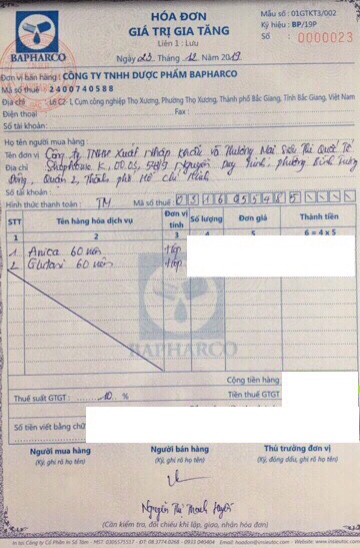 HÓA ĐƠN
GIÁ TRỊ GIA TĂNG
Liên 1 : Lưu
Mẫu số : 01GTKT3/002
Ký hiệu : BP/19P
Số : 0000023
BAPHARCO
Ngày 23 Tháng 12 Năm 2019
Đơn vị bán hàng : CÔNG TY TNHH DƯỢC PHẨM BAPHARCO
Mã số thuế : 2400740588
Địa chỉ : Lô C2-1, Cụm công nghiệp Thọ Xương, Phường Thọ Xương, Thành phố Bắc Giang, Tỉnh Bắc Giang, Việt Nam
Điện thoại : Fax :
Số tài khoản:
Họ tên người mua hàng :
Tên đơn vị Công ty TNHH Xuất Nhập khẩu và Thương Mại Siêu Thị Quốc Tế
Địa chỉ Shophouse K. 00.03, Nguyễn Duy Trinh, phường Bình Trưng
Đông, Quận 2, Thành phố Hồ Chí Minh
Số tài khoản :
Hình thức thanh toán: TM Mã số thuế
STT Tên hàng hóa dịch vụ Đơn vị tính Số lượng Đơn giá Thành tiền
1 2 3 4 5 6 = 4 x 5
1 Anica 60 viên Hộp
2 60 viên Hộp
BAPHARCO
Cộng tiền hàng
Thuế suất GTGT : 10 % Tiền thuế GTGT
Số tiền viết bằng chữ
Người mua hàng Người bán hàng Thủ trưởng đơn vị
(Ký, ghi rõ họ tên) (Ký, ghi rõ họ tên) (Ký, đóng dấu, ghi rõ họ tên)
Nguyễn Thị
(Cần kiểm tra, đối chiếu khi lập, giao, nhận hóa đơn)